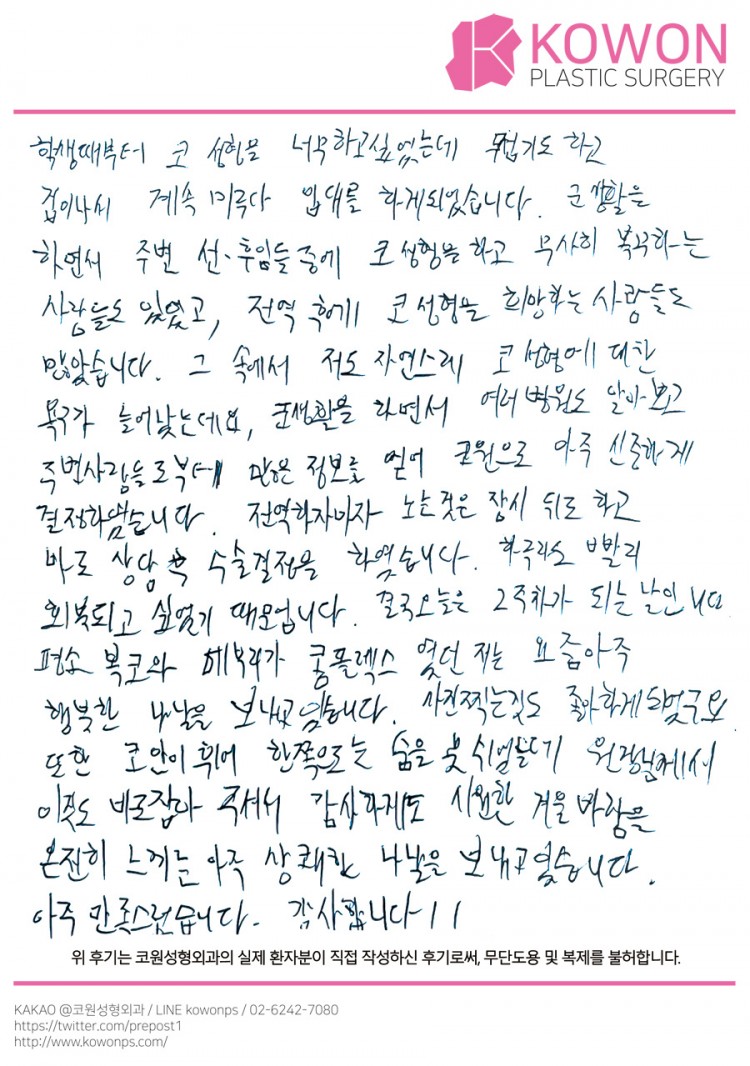 KOWON
PLASTIC SURGERY
학생때부터 코 성형을 너무하고싶었는데 무섭기도 하고
겁이나서 계속 미루다 입대를 하게되었습니다. 군생활을
하면서 주변 선·후임들 중에 코성형을 하고 무사히 복귀하는
사람들도 있었고, 전역 후에 코성형을 희망하는 사람들도
많았습니다. 그 속에서 저도 자연스레 코 성형에 대한
욕구가 늘어났는데요, 군생활을 하면서 여러 병원도 알아보고
주변사람들로부터 많은 정보를 얻어 코원으로 아주 신중하게
결정하였습니다. 전역하자마자 노는것은 잠시 뒤로 하고
바로 상담 후 수술결정을 하였습니다. 하루라도 빨리
회복되고 싶었기 때문입니다. 결국오늘은 2주차가 되는 날인데요
평소 복코와 매부리가 콤플렉스 였던 저는 요즘아주
행복한 나날을 보내고 있습니다. 사진찍는것도 좋아하게되었구요
또한 코안이 휘어 한쪽으로는 숨을 못 쉬었는데 원장님께서
이것도 바로잡아 주셔서 감사하게도 시원한 겨울 바람을
온전히 느끼는 아주 상쾌한 나날을 보내고 있습니다.
아주 만족스럽습니다. 감사합니다!!
위 후기는 코원성형외과의 실제 환자분이 직접 작성하신 후기로써, 무단도용 및 복제를 불허합니다.
KAKAO @코원성형외과 / LINE kowonps / 02-6242-7080
https://twitter.com/prepost1
http://www.kowonps.com/